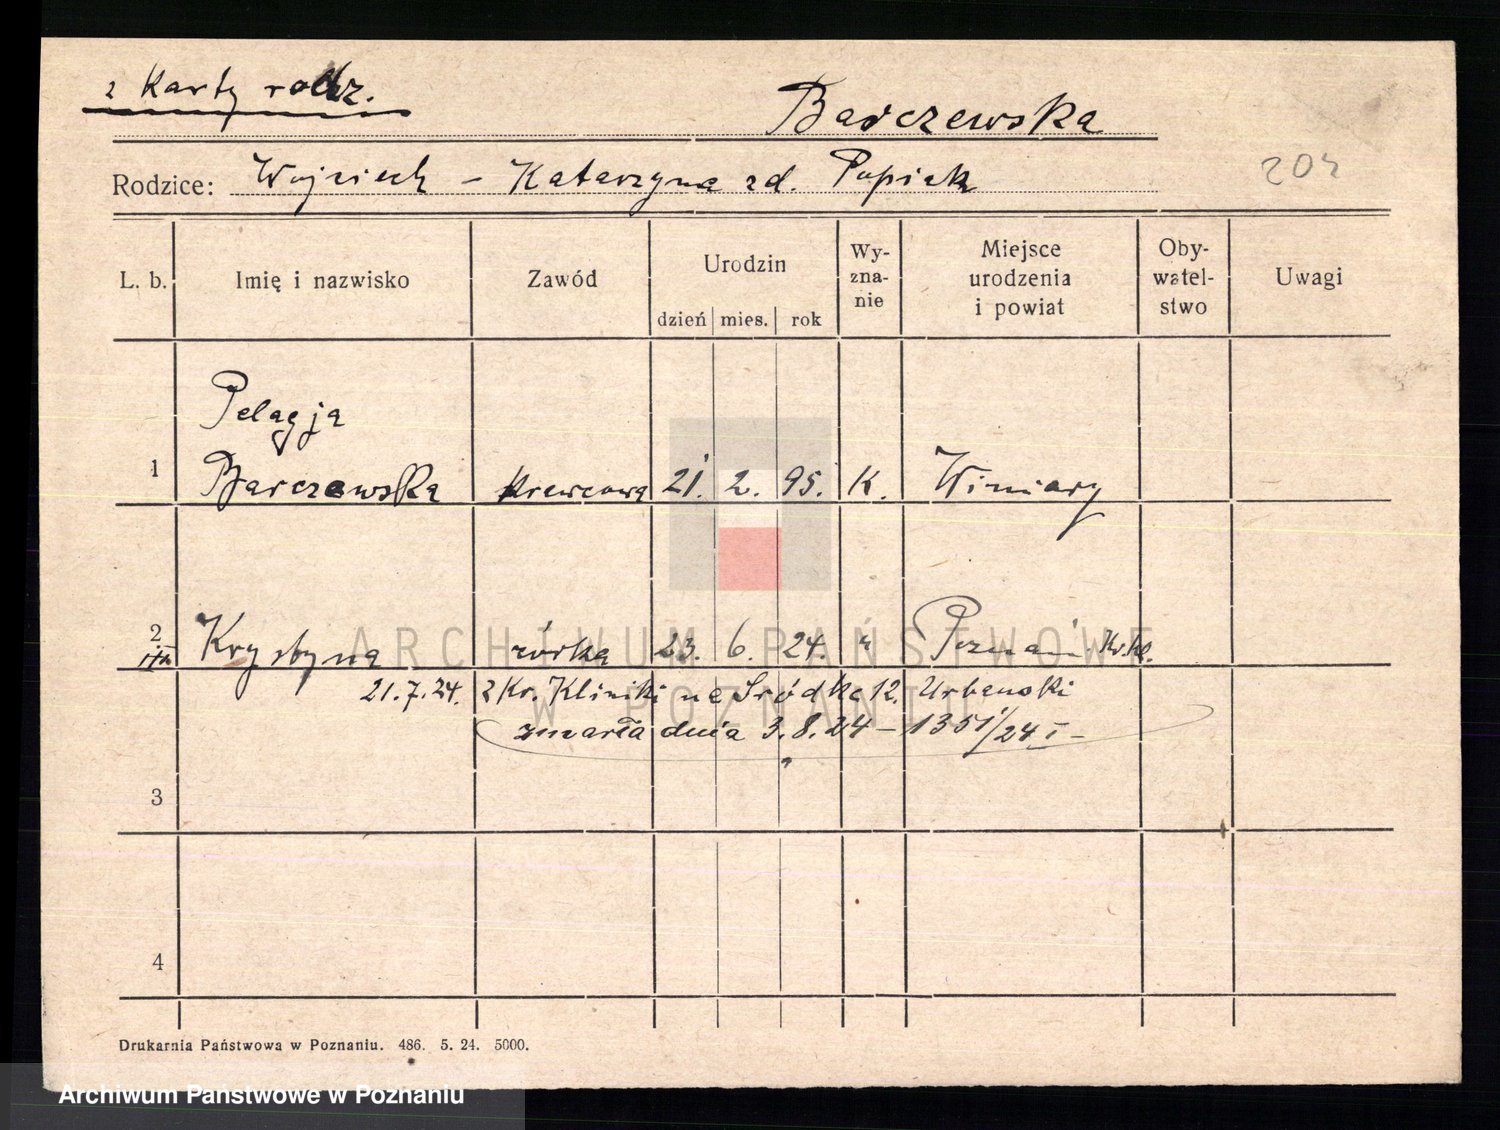 z karty rodz.
Barczewska
Rodzice: Wojciech – Katarzyna zd. Pupiak
204
L. b. Imię i nazwisko Zawód Urodzin dzień mies. rok Wy-zna-nie Miejsce urodzenia i powiat Oby-watel-stwo Uwagi
Pelagja
1 Barczewska krawcowa 21. 2. 95. K. Winiary
2 Krystyna córka 23. 6. 24. " Poznań Kr. kl.
21.7.24. z Kr. Kliniki na Śródkę 12. Urbański
zmarła dnia 3.8.24 – 1351/24 I –
3
4
Drukarnia Państwowa w Poznaniu. 486. 5. 24. 5000.
ARCHIWUM PAŃSTWOWE
W POZNANIU
Archiwum Państwowe w Poznaniu